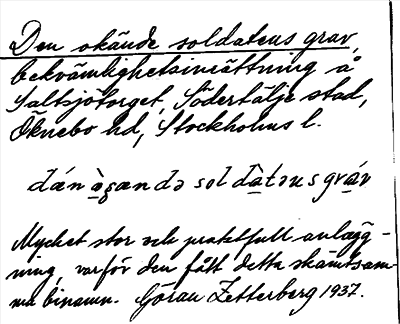 Den okände soldatens grav,
bekvämlighetsinrättning å
Saltsjötorget, Södertälje stad,
Öknebo hd, Stockholms l.
dán ò̱ȿændə soldà̱təusgrá̱v
Mycket stor och praktfull anlägg-
ning, varför den fått detta skämtsam-
ma binamn. Göran Zetterberg 1937.